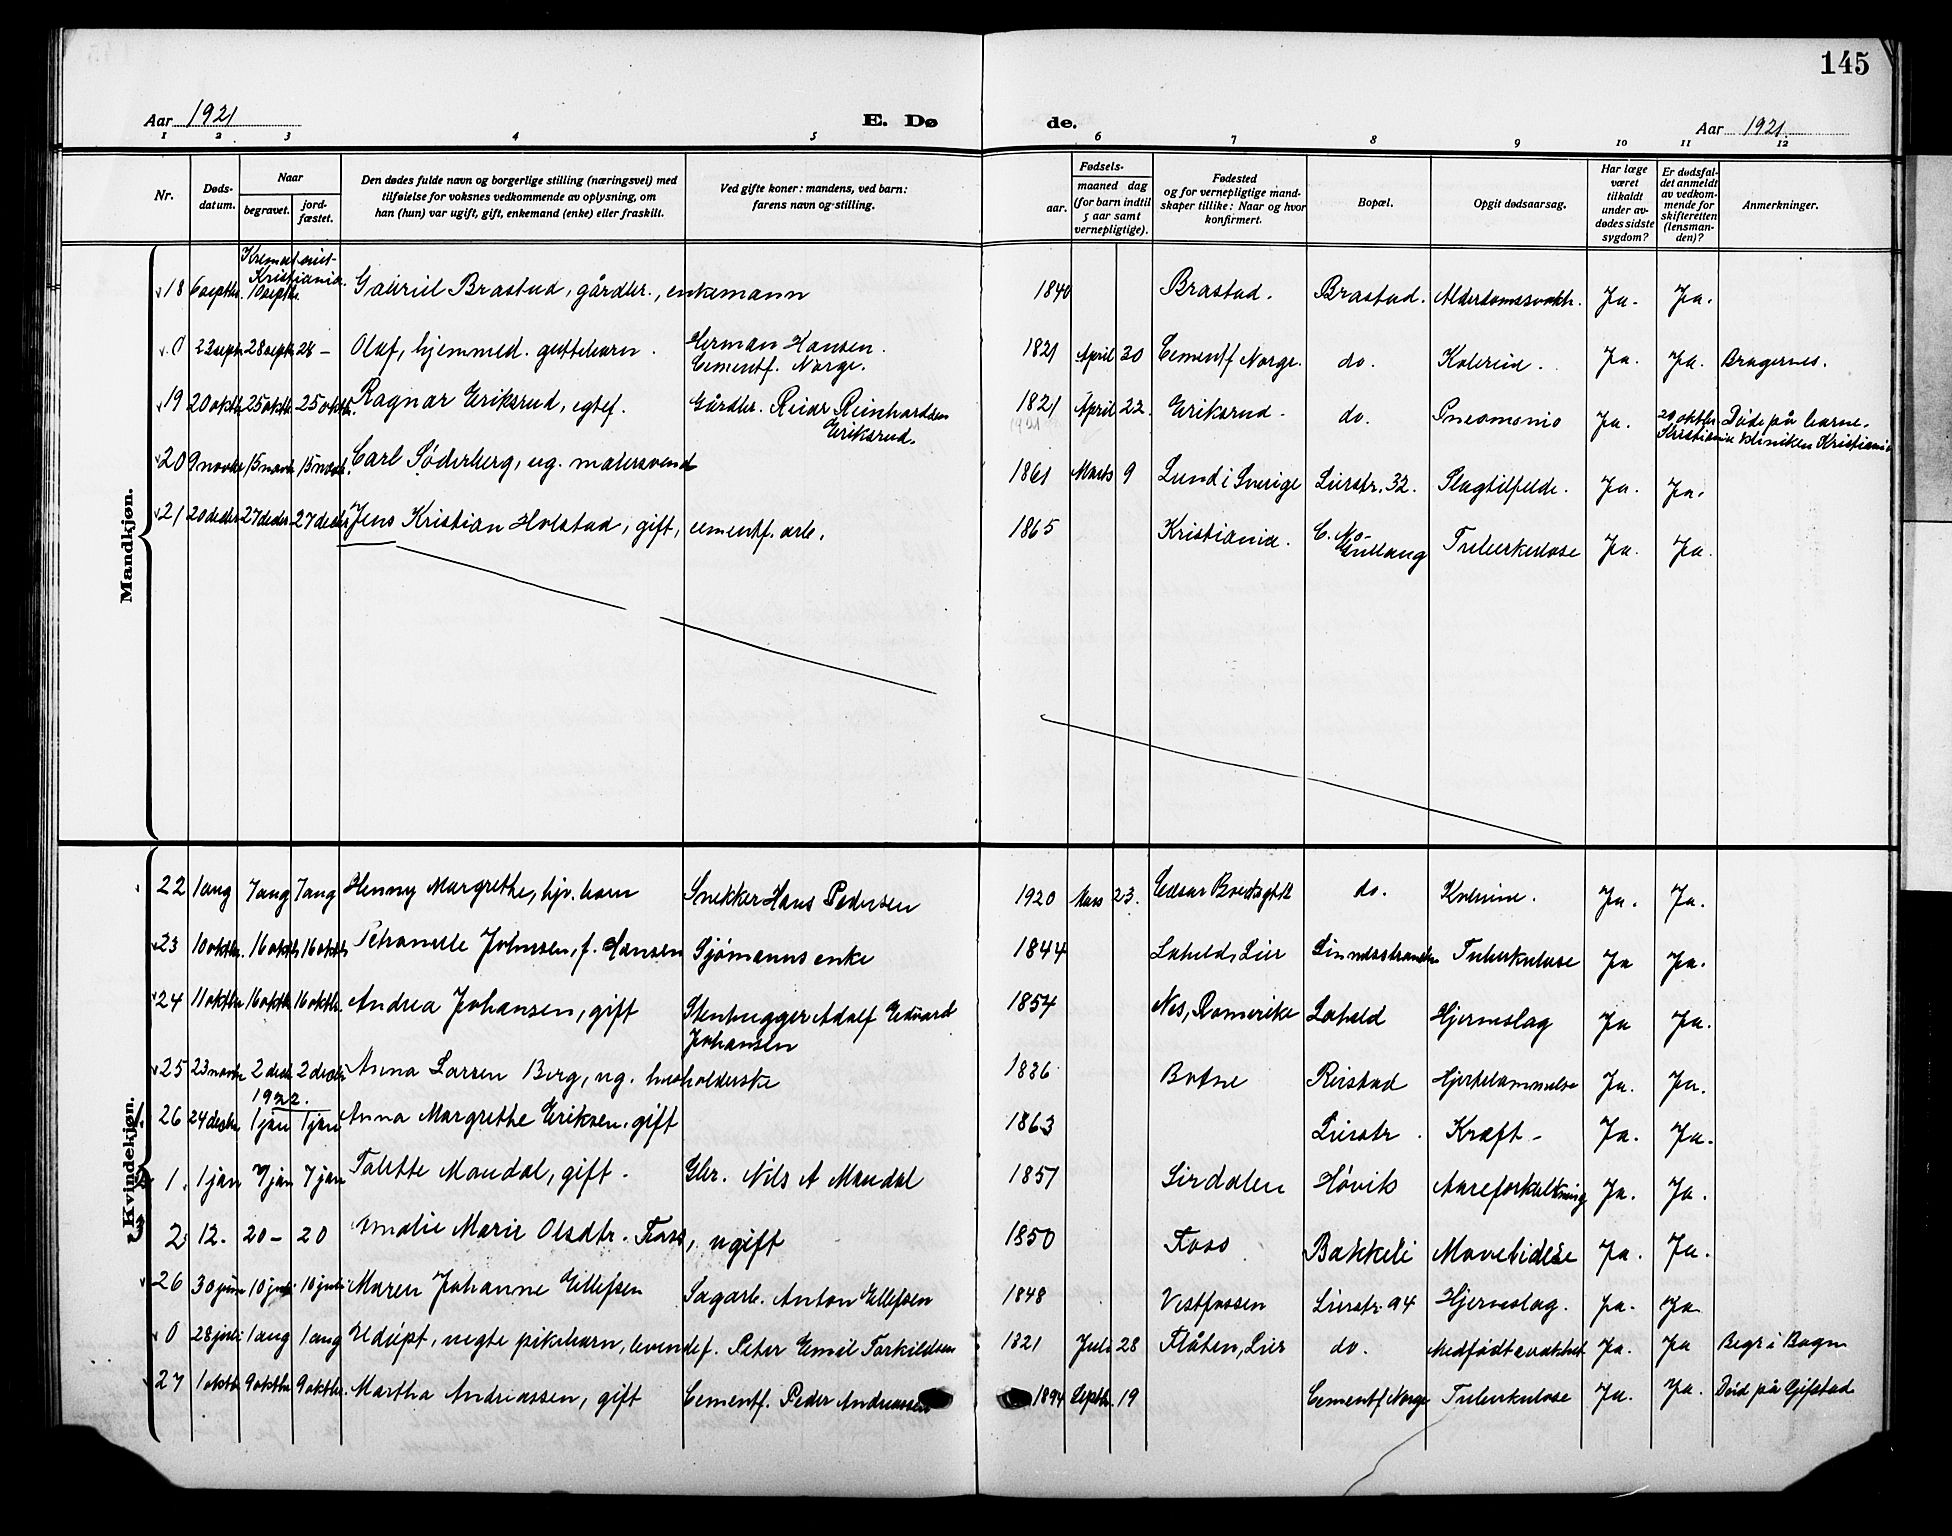 145
Aar 1921
E. Dø
de.
Aar 1921
1 2 3 4 5 6 7 8 9 10 11 12
Nr.
Døds-
datum.
Naar
begravet.
jord-
fæstet.
Den dødes fulde navn og borgerlige stilling (næringsvei) med
tilføielse for voksnes vedkommende av oplysning, om
han (hun) var ugift, gift, enkemand (enke) eller fraskilt.
Ved gifte koner: mandens, ved barn:
farens navn og stilling.
Fødsels-
aar.
maaned dag
(for barn indtil
5 aar samt
vernepligtige).
Fødested
og for vernepligtige mand-
skaper tillike: Naar og hvor
konfirmert.
Bopæl.
Opgit dødsaarsag.
Har læge
været
tilkaldt
under av-
dødes sidste
sygdom?
Er dødsfal-
det anmeldt
av vedkom-
mende for
skifteretten
(lensman-
den)?
Anmerkninger.
Mandkjøn.
Krematoriet
Kristiania.
18 6 septbr. 10 septbr. Gabriel Brastad, gårdbr., enkemann 1840 Brastad. Brastad. Alderdomssvakh. Ja. Ja.
0 22 septr 28 septr 28 - Olaf, hjemmed. guttebarn. Herman Hansen. 1821 April 30 Cementf Norge. do. Kolerine. Ja. Ja. Bragernes.
Cementf. Norge.
19 20 oktbr 25 oktbr 25 oktbr. Ragnar Eriksrud, egtef. Gårdbr. Reidar Reinhardsen 1821 April 22. Eriksrud. do. Pneomonio Ja. 20 oktbr Døde på barne-
Eriksrud. 1921 Kristiania kliniken Kristiania
20 9 novbr 15 novbr 15 novbr. Carl Søderberg, ug. malersvend 1861 Marts 9 Lund i Sverige Lierstr. 32. Slagtilfelde. Ja. Ja.
21 20 decbr 27 decbr 27 decbr Jens Kristian Holstad, gift, cementf. arb. 1865 Kristiania. C. No- Tuberkulose Ja. Ja.
Gullaug
Kvindekjøn.
22 1 aug 7 aug 7 aug Henny Margrethe, hjv. barn Snekker Hans Pedersen 1920 Mars 23. do. Kolerine. Ja. Ja.
23 10 oktbr. 16 oktbr 16 oktbr Petronelle Johnsen, f. Hansen Sjømanns enke 1844 Laheld, Lier Linnesstranden Tuberkulose Ja Ja.
24 11 oktbr 16 oktbr 16 oktbr. Andrea Johansen, gift Stenhugger Adolf Edvard 1854 Nes, Romerike Laheld Hjerneslag Ja Ja.
Johansen
25 23 novbr 2 decbr 2 decbr Anna Larsen Berg, ug. husholderske 1836 Botne Reistad Hjertelammelse Ja. Ja.
1922.
26 24 decbr 1 jan 1 jan Anna Margrethe Eriksen, gift 1863 Lierstr. Kræft - Ja. Ja.
1. 1 jan 7 jan 7 jan Talette Mandal, gift. Gbr. Nils A Mandal 1851 Sirdalen Høvik Aareforkalkning Ja. Ja.
2 12. 20 - 20 Amalie Marie Olsdtr. Foss, ugift 1850 Foss Bakkeli Mavelidelse Ja. Ja.
26 30 juni 10 juli 10 juli Maren Johanne Ellefsen Sagarb. Anton Ellefsen 1848 Vestfossen Lierstr. 94 Hjerneslag. Ja. Ja
0 28 juli 1 aug 1 aug Udøpt, uegte pikebarn, levende f. Peter Emil Torkildsen 1821 Juli 28 Flåten, Lier do. Medfødt svakhet Ja. Ja Begr i Bagn
27 1 oktbr 9 oktbr 9 oktbr. Martha Andreassen, gift Cementf. Peder Andreassen 1894 Septbr. 19 Cementf Norge Tuberkulose Ja. Ja. Død på Gifstad